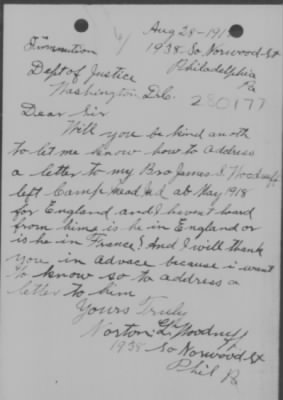 Aug 28-191
1938 So. Norwood St
Philadelphia
Pa
Dept of Justice
Washington D.C.
280177
Dear Sir
Will you be kind anoth
to let me know how to address
a letter to my Bro James
left Camp Mead Md ab May 1918
for England and I havent heard
from him, is he in England or
is he in France? And I will thank
you in advace because i want
to know so to address a
letter to him
Yours Truly
Norton Woodruff
1938 So Norwood St
Phil Pa